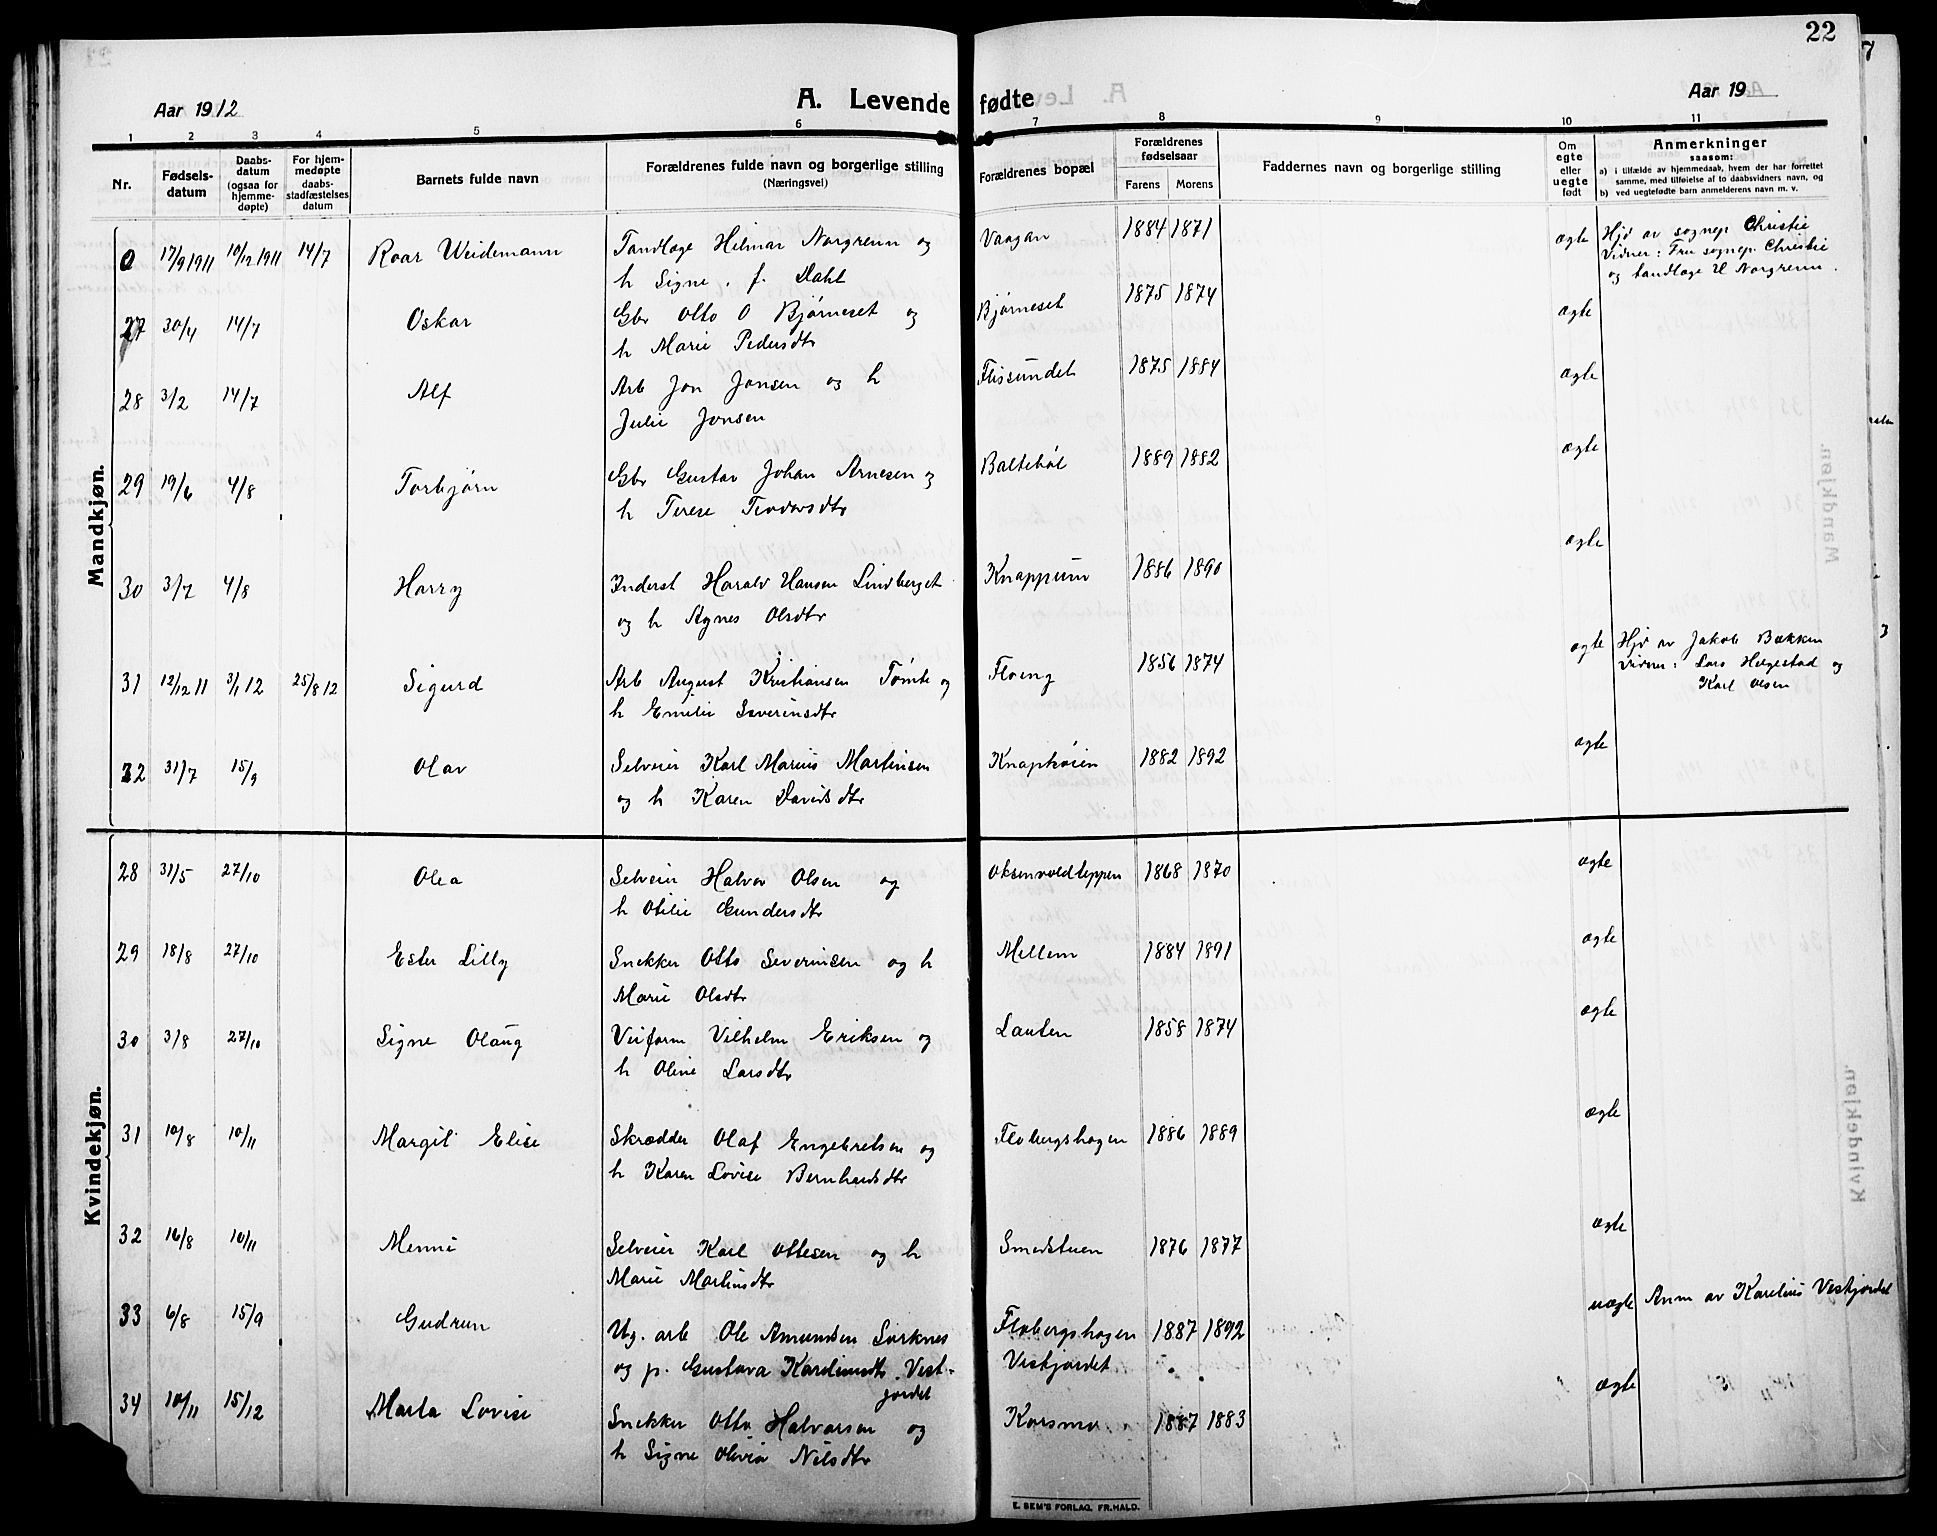 22
Aar 1912
A. Levende fødte
Aar 19
1 2 3 4 5 6 7 8 9 10 11
Nr.
Fødsels-
datum
Daabs-
datum
(ogsaa for
hjemme-
døpte)
For hjem-
medøpte
daabs-
stadfæstelses
datum
Barnets fulde navn
Forældrenes fulde navn og borgerlige stilling
(Næringsvei)
Forældrenes bopæl
Forældrenes
fødselsaar
Farens Morens
Faddernes navn og borgerlige stilling
Om
egte
eller
uegte
født
Anmerkninger
saasom:
a) i tilfælde av hjemmedaab, hvem der har forrettet
samme, med tilføielse af to daabsvidners navn, og
b) ved uegtefødte barn anmelderens navn m. v.
Mandkjøn.
0 17/9 1911 10/12 1911 14/7 Roar Weidemann Tandlæge Hilmar Norgrenn og Vaagan 1884 1871 ægte Hjd av sognep. Christie
h Signe, f. Dahl Vidner: Fru sognep. Christie
og tandlæge H Norgrenn.
27 30/4 14/7 Oskar Gbr Otto O Bjørneset og Bjørneset 1875 1874 ægte
h Marie Pedersdtr
28 3/2 14/7 Alf Arb Jon Jonsen og h Flissundet 1875 1884 ægte
Julie Jonsen
29 19/6 4/8 Torbjørn Gbr Gustav Johan Arnesen og Baltebøl 1889 1882 ægte
h Terese Teodorsdtr
30 3/7 4/8 Harry Inderst Harald Hansen Lindberget Knappum 1886 1890 ægte
og h Agnes Olsdtr
31 12/12 11 3/1 12 25/8 12 Sigurd Arb August Kristiansen Tømte og Floeng 1856 1874 ægte Hjd av Jakob Bækken
h Emilie Severinsdtr Vidner: Lars Hægestad og
Karl Olsen
32 31/7 15/9 Olav Selveier Karl Marius Martinsen Knaphøien 1882 1892 ægte
og h Karen Davidsdtr
Kvindekjøn.
28 31/5 27/10 Olea Selveier Halvor Olsen og Oksenvoldteppen 1868 1870 ægte
h Otilie Gundersdtr
29 18/8 27/10 Ester Lilly Snekker Otto Severinsen og h Mellem 1884 1891 ægte
Marie Olsdtr
30 3/8 27/10 Signe Olaug Veiform Vilhelm Eriksen og Lauten 1858 1874 ægte
h Oline Larsdtr
31 10/8 10/11 Margit Elise Skrædder Olaf Engebretsen og Flobergshagen 1886 1889 ægte
h Karen Lovise Bernhardsdtr
32 16/8 10/11 Menni Selveier Karl Ottesen og h Smedstuen 1876 1877 ægte
Marie Martinsdtr
33 6/8 15/9 Gudrun Ug. arb Ole Amundsen Lorknes Flobergshagen 1887 1892 uægte Anm av Karelius Vestjordet
og p. Gustava Kareliusdtr Vest- Vestjordet
jordet
34 10/11 15/12 Marta Lovise Snekker Otto Halvorsen og Korsmo 1887 1883 ægte
h Signe Olivia Nilsdtr
E. SEM'S FORLAG, FR.HALD.